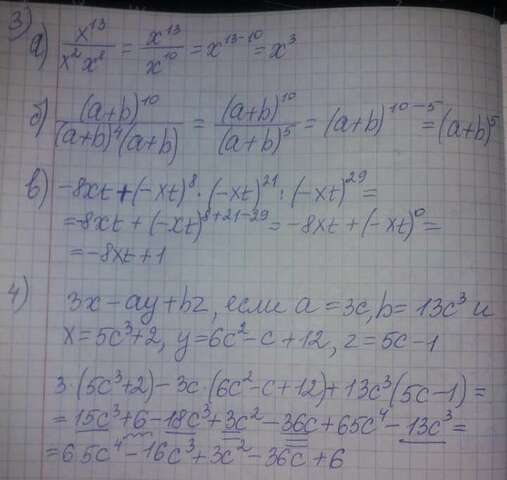 3)
а) x^13/(x^2 x^8) = x^13/x^10 = x^(13-10) = x^3
б) (a+b)^10/((a+b)^4(a+b)) = (a+b)^10/(a+b)^5 = (a+b)^(10-5) = (a+b)^5
в) -8xt + (-xt)^8 · (-xt)^21 : (-xt)^29 =
= -8xt + (-xt)^(8+21-29) = -8xt + (-xt)^0 =
= -8xt + 1
4)
3x - ay + bz, если a = 3c, b = 13c^3 и
x = 5c^3+2, y = 6c^2 - c + 12, z = 5c - 1
3·(5c^3+2) - 3c·(6c^2 - c + 12) + 13c^3(5c - 1) =
= 15c^3 + 6 - 18c^3 + 3c^2 - 36c + 65c^4 - 13c^3 =
= 65c^4 - 16c^3 + 3c^2 - 36c + 6